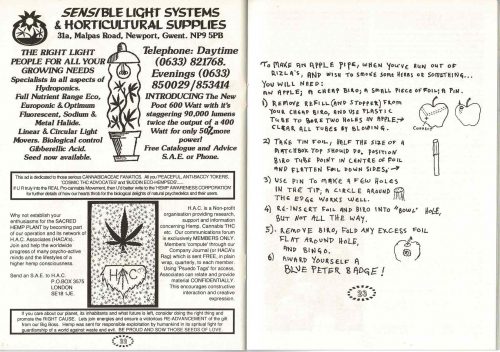 SENSIBLE LIGHT SYSTEMS
& HORTICULTURAL SUPPLIES
31a, Malpas Road, Newport, Gwent. NP9 5PB
THE RIGHT LIGHT
PEOPLE FOR ALL YOUR
GROWING NEEDS
Specialists in all aspects of
Hydroponics.
Full Nutrient Range Eco,
Europonic & Optimum
Fluorescent, Sodium &
Metal Halide.
Linear & Circular Light
Movers. Biological control
Gibberellic Acid.
Seed now available.
Telephone: Daytime
(0633) 821768.
Evenings (0633)
850029/853414
INTRODUCING The New
Poot 600 Watt with it's
staggering 90,000 lumens
twice the output of a 400
Watt for only 50% more
power!
Free Catalogue and Advice
S.A.E. or Phone.
This ad is dedicated to those serious CANNABACEAE FANATICS. All you PEACEFUL ANTI-BACCY TOKERS,
'COSMIC THE ADVOCATES' and 'BUDDIN ECO-HEMPSEED'......
If U R truly into the REAL Pro-cannabis Movement, then U'd better write to the HEMP AWARENESS CORPORATION
for further details of how our hearts thrist for the biological delights of natural psychedelics and their users.
Why not establish your
enthusiasms for the SACRED
HEMP PLANT by becoming part
of our operandi and its network of
H.A.C. Associates (HACA's).
Join and help the worldwide
progress of many psycho-active
minds and the lifestyles of a
higher hemp consciousness.
Send an S.A.E. to H.A.C.
P.O.BOX 3675
LONDON
SE18 1JE.
HAC
H.A.C. is a Non-profit
organisation providing research,
support and information
concerning Hemp, Cannabis THC
etc. Our communications forum
is exclusively MEMBERS ONLY.
Members 'compute' through our
Company journal (or HACA's
Rag) which is sent FREE, in plain
wrap, quarterly, to each member.
Using "Psuedo Tags" for access,
Associates can relate and provide
material CONFIDENTIALLY.
This encourages constructive
interaction and creative
expression.
If you care about our planet, its inhabitants and what future is left, consider doing the right thing and
promote the RIGHT CAUSE. Lets join energies and ensure a victorious RE-ADVANCEMENT of the gift
from our Big Boss. Hemp was sent for responsible exploitation by humankind in its spiritual fight for
guardianship of a world against waste and evil. BE PROUD AND SOW THOSE SEEDS OF LOVE.
To MAKE AN APPLE PIPE, WHEN YOU'VE RUN OUT OF
RIZLA'S, AND WISH TO SMOKE SOME HERBS OR SOMETHING...
YOU WILL NEED:
AN APPLE; A CHEAP BIRO; A SMALL PIECE OF FOIL; A PIN.
1) REMOVE REFILL (AND STOPPER) FROM
YOUR CHEAP BIRO, AND USE PLASTIC
TUBE TO BORE TWO HOLES IN APPLE →
CLEAR ALL TUBES BY BLOWING.
2) TAKE TIN FOIL, HALF THE SIZE OF A
MATCHBOX TOP SHOULD DO, POSITION
BIRO TUBE POINT IN CENTRE OF FOIL
AND FLATTEN FOIL DOWN SIDES; →
3) USE PIN TO MAKE A FEW HOLES
IN THE TIP, A CIRCLE AROUND
THE EDGE WORKS WELL.
4) RE-INSERT FOIL AND BIRO INTO "BOWL" HOLE,
BUT NOT ALL THE WAY.
5). REMOVE BIRO, FOLD ANY EXCESS FOIL
FLAT AROUND HOLE,
AND BINGO.
6) AWARD YOURSELF A
BLUE PETER BADGE!